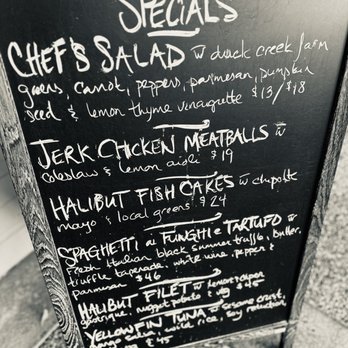 SPECIALS
CHEF'S SALAD w duck creek farm
greens, carrot, peppers, parmesan, pumpkin
seed & lemon thyme vinaigrette $13/$18
JERK CHICKEN MEATBALLS w
coleslaw & lemon aioli $19
HALIBUT FISH CAKES w chipotle
mayo & local greens $24
SPAGHETTI ai FUNGHI e TARTUFO w
Fresh Italian black summer truffle, butter,
truffle tapenade, white wine, pepper &
parmesan $46
HALIBUT FILET w lemon + caper
gastrique, nugget potato & veg $45
YELLOWFIN TUNA w sesame crust,
mango salsa, wild rice, soy reduction
$45